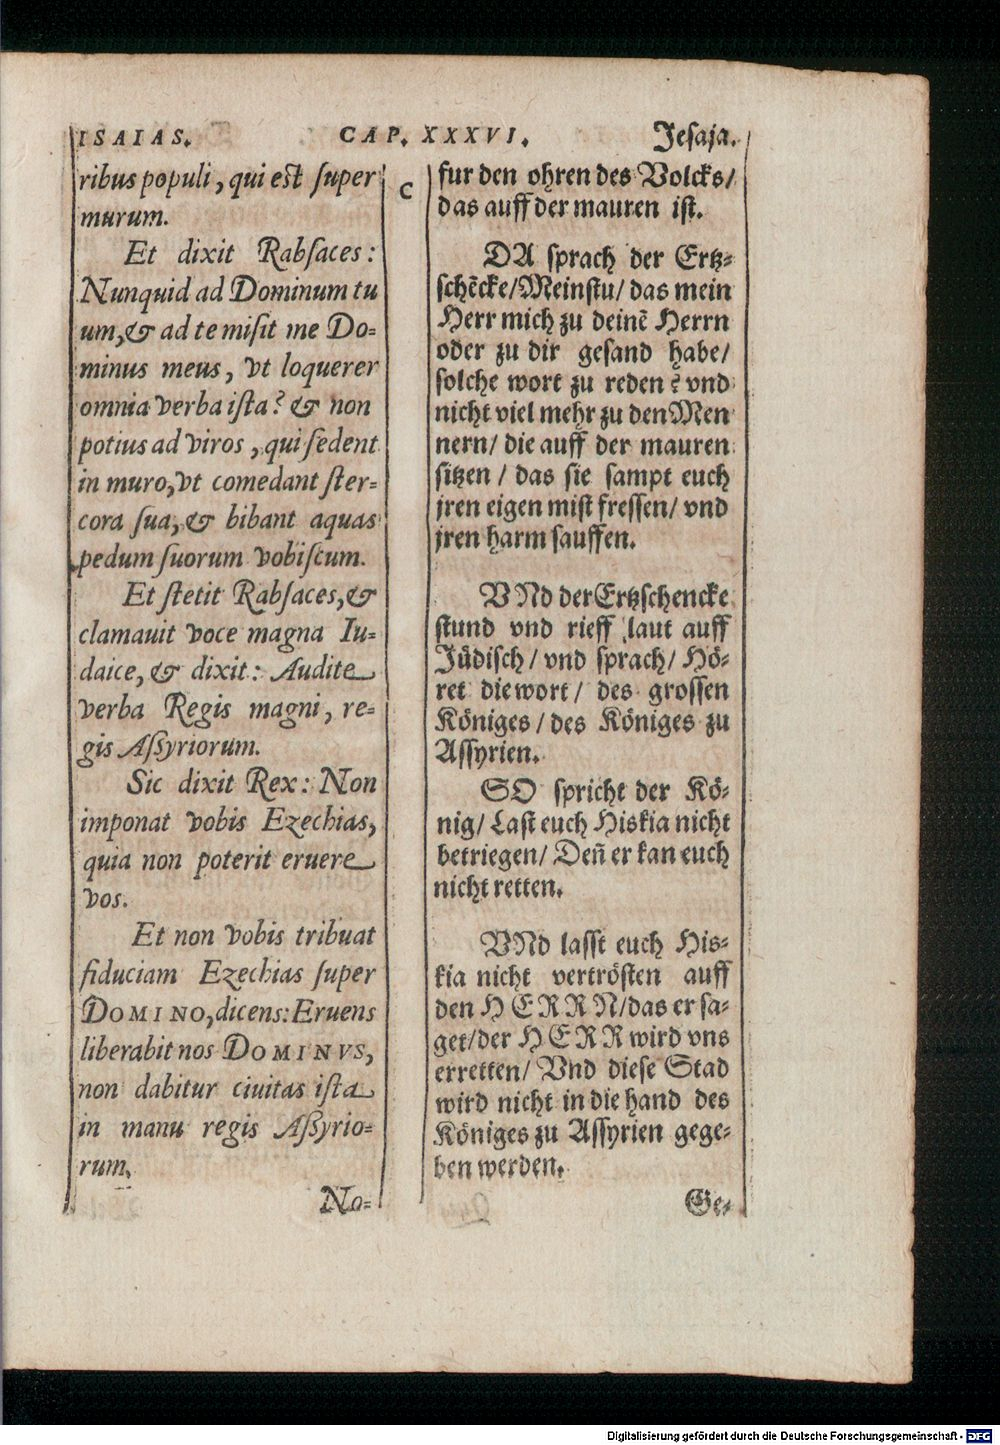 ISAIAS.
CAP. XXXVI.
Jeſaja.
ribus populi, qui eſt ſuper
murum.
Et dixit Rabſaces:
Nunquid ad Dominum tu
um, & ad te miſit me Do-
minus meus, vt loquerer
omnia verba iſta? & non
potius ad viros, qui ſedent
in muro, vt comedant ſter-
cora ſua, & bibant aquas
pedum ſuorum vobiſcum.
Et ſtetit Rabſaces, &
clamauit voce magna Iu-
daice, & dixit: Audite
verba Regis magni, re-
gis Aſſyriorum.
Sic dixit Rex: Non
imponat vobis Ezechias,
quia non poterit eruere
vos.
Et non vobis tribuat
fiduciam Ezechias ſuper
DOMINO, dicens: Eruens
liberabit nos DOMINVS,
non dabitur ciuitas iſta
in manu regis Aſſyrio-
rum.
No-
C
fur den ohren des Volcks/
das auff der mauren iſt.
DA ſprach der Ertz-
ſchẽcke/Meinſtu/ das mein
Herr mich zu deinẽ Herrn
oder zu dir geſand habe/
ſolche wort zu reden? vnd
nicht viel mehr zu den Men
nern/ die auff der mauren
ſitzen/ das ſie ſampt euch
jren eigen miſt freſſen/ vnd
jren harm ſauffen.
VNd der Ertzſchencke
ſtund vnd rieff laut auff
Jüdiſch/ vnd ſprach/ Hö-
ret die wort/ des groſſen
Königes/ des Königes zu
Aſſyrien.
SO ſpricht der Kö-
nig/ Laſt euch Hiskia nicht
betriegen/ Deñ er kan euch
nicht retten.
VNd laſſt euch His-
kia nicht vertröſten auff
den HERRN/das er ſa-
get/der HERR wird vns
erretten/ Vnd dieſe Stad
wird nicht in die hand des
Königes zu Aſſyrien gege-
ben werden.
Ge-
Digitalisierung gefördert durch die Deutsche Forschungsgemeinschaft - DFG